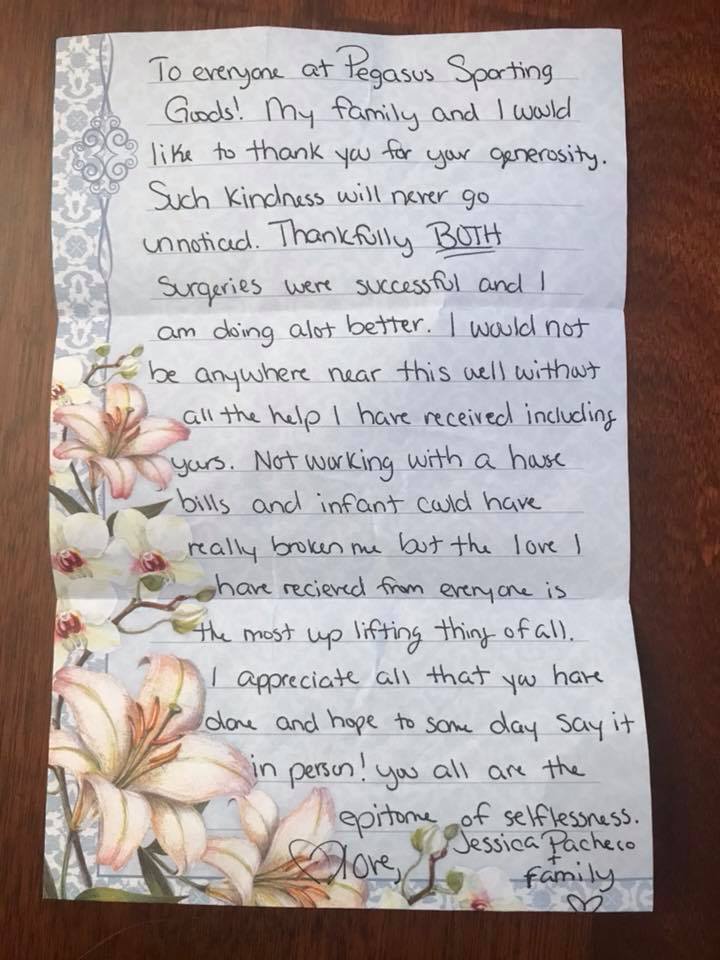 To everyone at Pegasus Sporting
Goods! My family and I would
like to thank you for your generosity.
Such kindness will never go
unnoticed. Thankfully BOTH
surgeries were successful and I
am doing alot better. I would not
be anywhere near this well without
all the help I have received including
yours. Not working with a house
bills and infant could have
really broken me but the love I
have recieved from everyone is
the most up lifting thing of all.
I appreciate all that you have
done and hope to some day say it
in person! you all are the
epitome of selflessness.
love, Jessica Pacheco
+
family